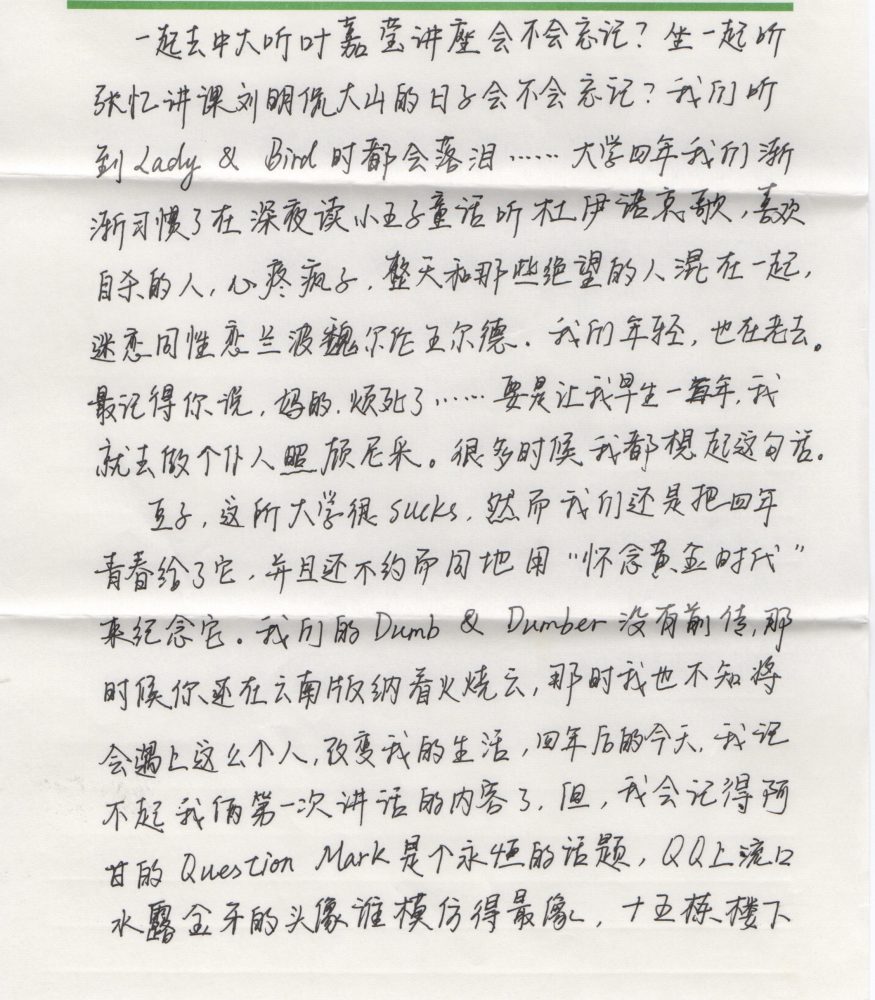 一起去中大听叶嘉莹讲座会不会忘记？坐一起听
张忆讲课刘明侃大山的日子会不会忘记？我们听
到Lady & Bird时都会落泪……大学四年我们渐
渐习惯了在深夜读小王子童话听杜伊诺哀歌，喜欢
自杀的人，心疼疯子，整天和那些绝望的人混在一起，
迷恋同性恋兰波魏尔伦王尔德．我们年轻，也在老去。
最记得你说，妈的，烦死了……要是让我早生一百年，我
就去做个仆人照顾尼采。很多时候我都想起这句话。
豆子，这所大学很sucks，然而我们还是把四年
青春给了它，并且还不约而同地用“怀念黄金时代”
来纪念它。我们的Dumb & Dumber没有前传，那
时候你还在云南版纳看火烧云，那时我也不知将
会遇上这么个人，改变我的生活，四年后的今天，我记
不起我俩第一次讲话的内容了，但，我会记得阿
甘的Question Mark是个永恒的话题，QQ上流口
水露金牙的头像谁模仿得最像，十五栋楼下